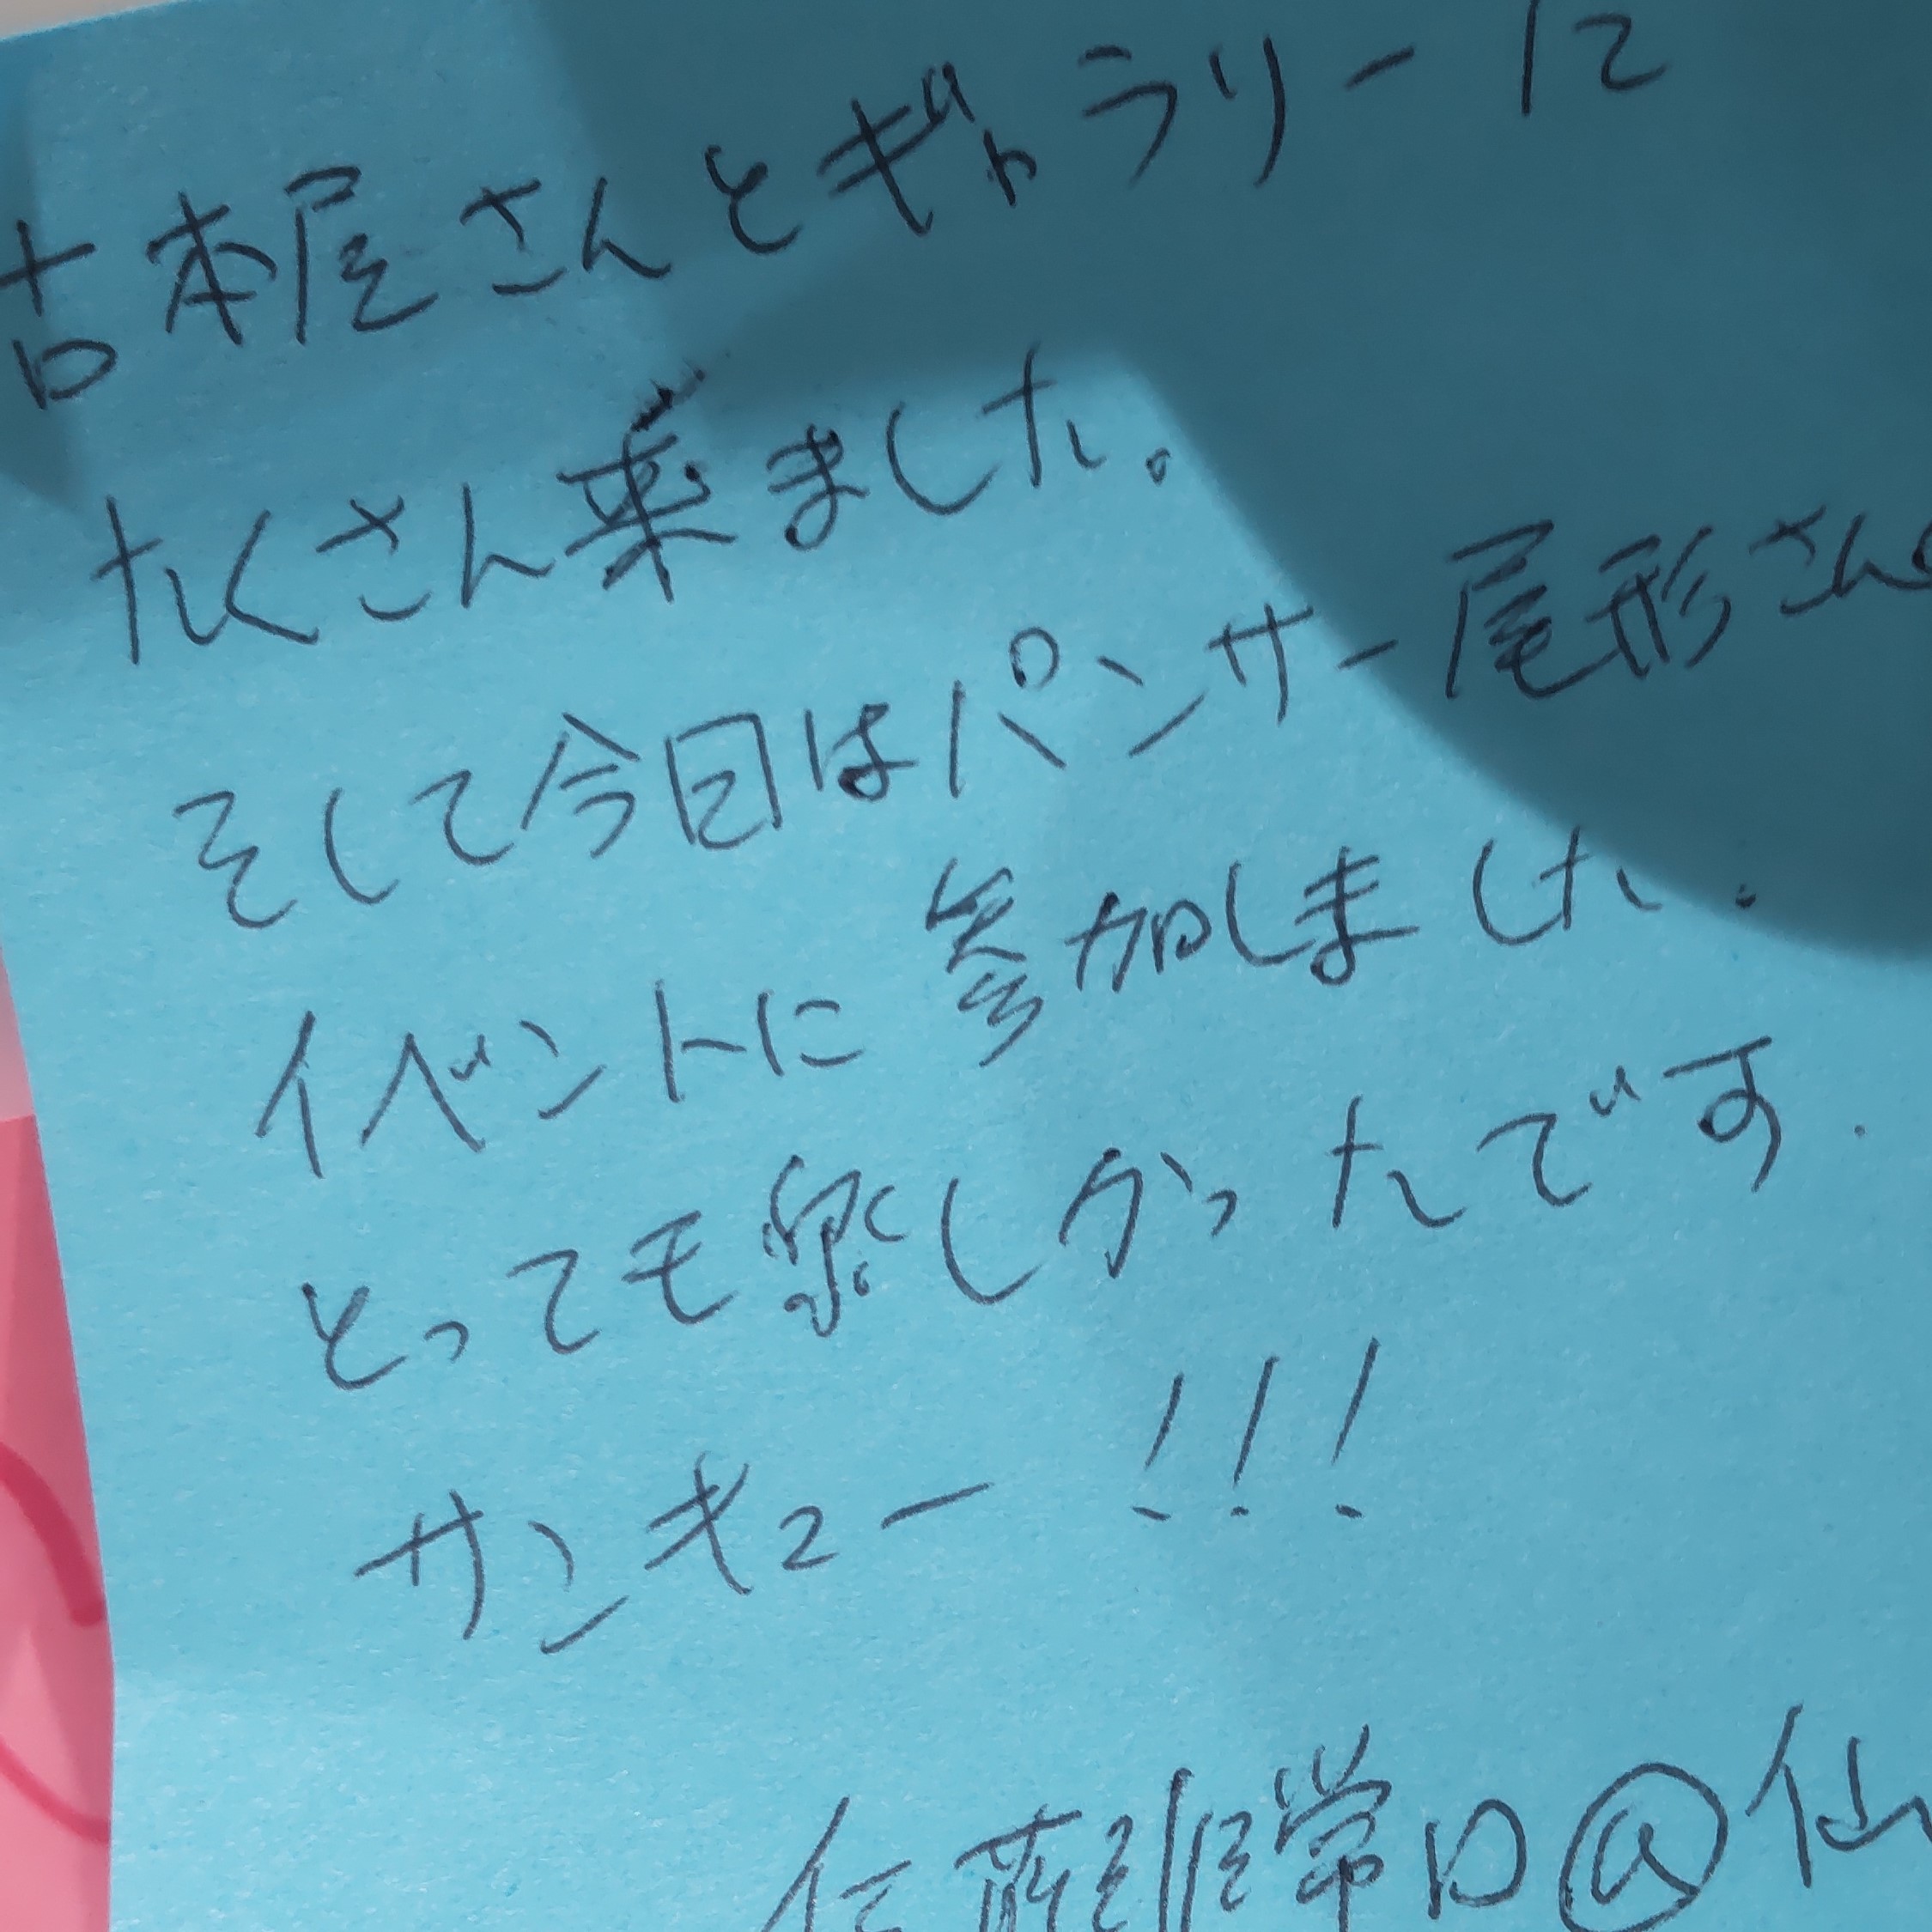 古本屋さんとギャラリーに
たくさん来ました。
そして今回はパンサー尾形さん
イベントに参加しました.
とっても楽しかったです.
サンキュー!!!
非常口@仙